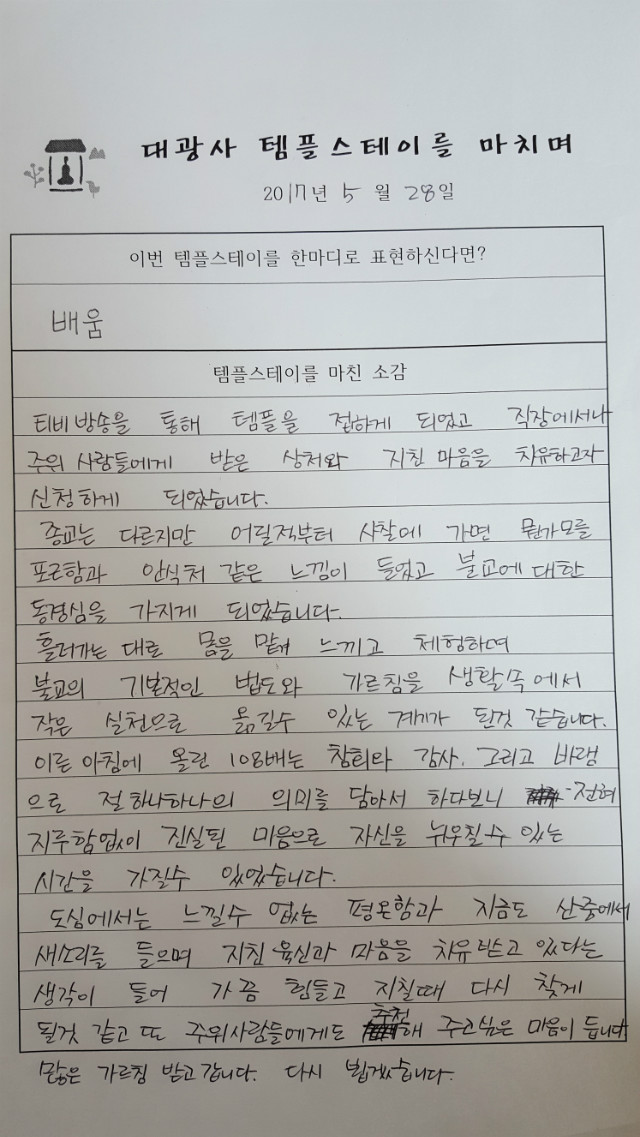 대광사 템플스테이를 마치며
2017년 5월 28일
이번 템플스테이를 한마디로 표현하신다면?
배움
템플스테이를 마친 소감
티비 방송을 통해 템플을 접하게 되었고 직장에서나
주위 사람들에게 받은 상처와 지친 마음을 치유하고자
신청하게 되었습니다.
종교는 다르지만 어릴적부터 사찰에 가면 뭔가모를
포근함과 안식처 같은 느낌이 들었고 불교에 대한
동경심을 가지게 되었습니다.
흘러가는 대로 몸을 맡겨 느끼고 체험하며
불교의 기본적인 법도와 가르침을 생활속에서
작은 실천으로 옮길수 있는 계기가 된것 같습니다.
이른 아침에 올린 108배는 참회와 감사. 그리고 바램
으로 절 하나하나의 의미를 담아서 하다보니 전혀
지루함없이 진실된 마음으로 자신을 뉘우칠수 있는
시간을 가질수 있었습니다.
도심에서는 느낄수 없는 평온함과 지금도 산중에서
새소리를 들으며 지친 육신과 마음을 치유받고 있다는
생각이 들어 가끔 힘들고 지칠때 다시 찾게
될것 같고 또 주위사람들에게도 추천해 주고싶은 마음이 듭니다
많은 가르침 받고 갑니다. 다시 뵙겠습니다.